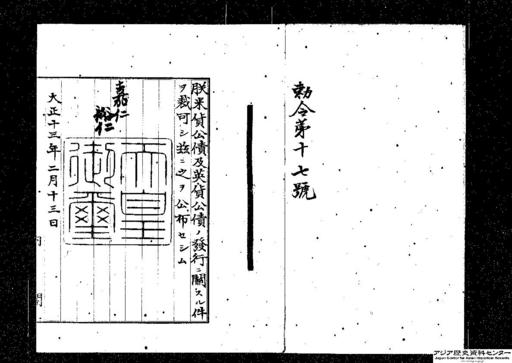 勅令第十七號
朕米貨公債及英貨公債ノ發行ニ關スル件
ヲ裁可シ玆ニ之ヲ公布セシム
嘉仁
裕仁
天皇御璽
大正十三年二月十三日
内閣
アジア歴史資料センター
Japan Center for Asian Historical Records